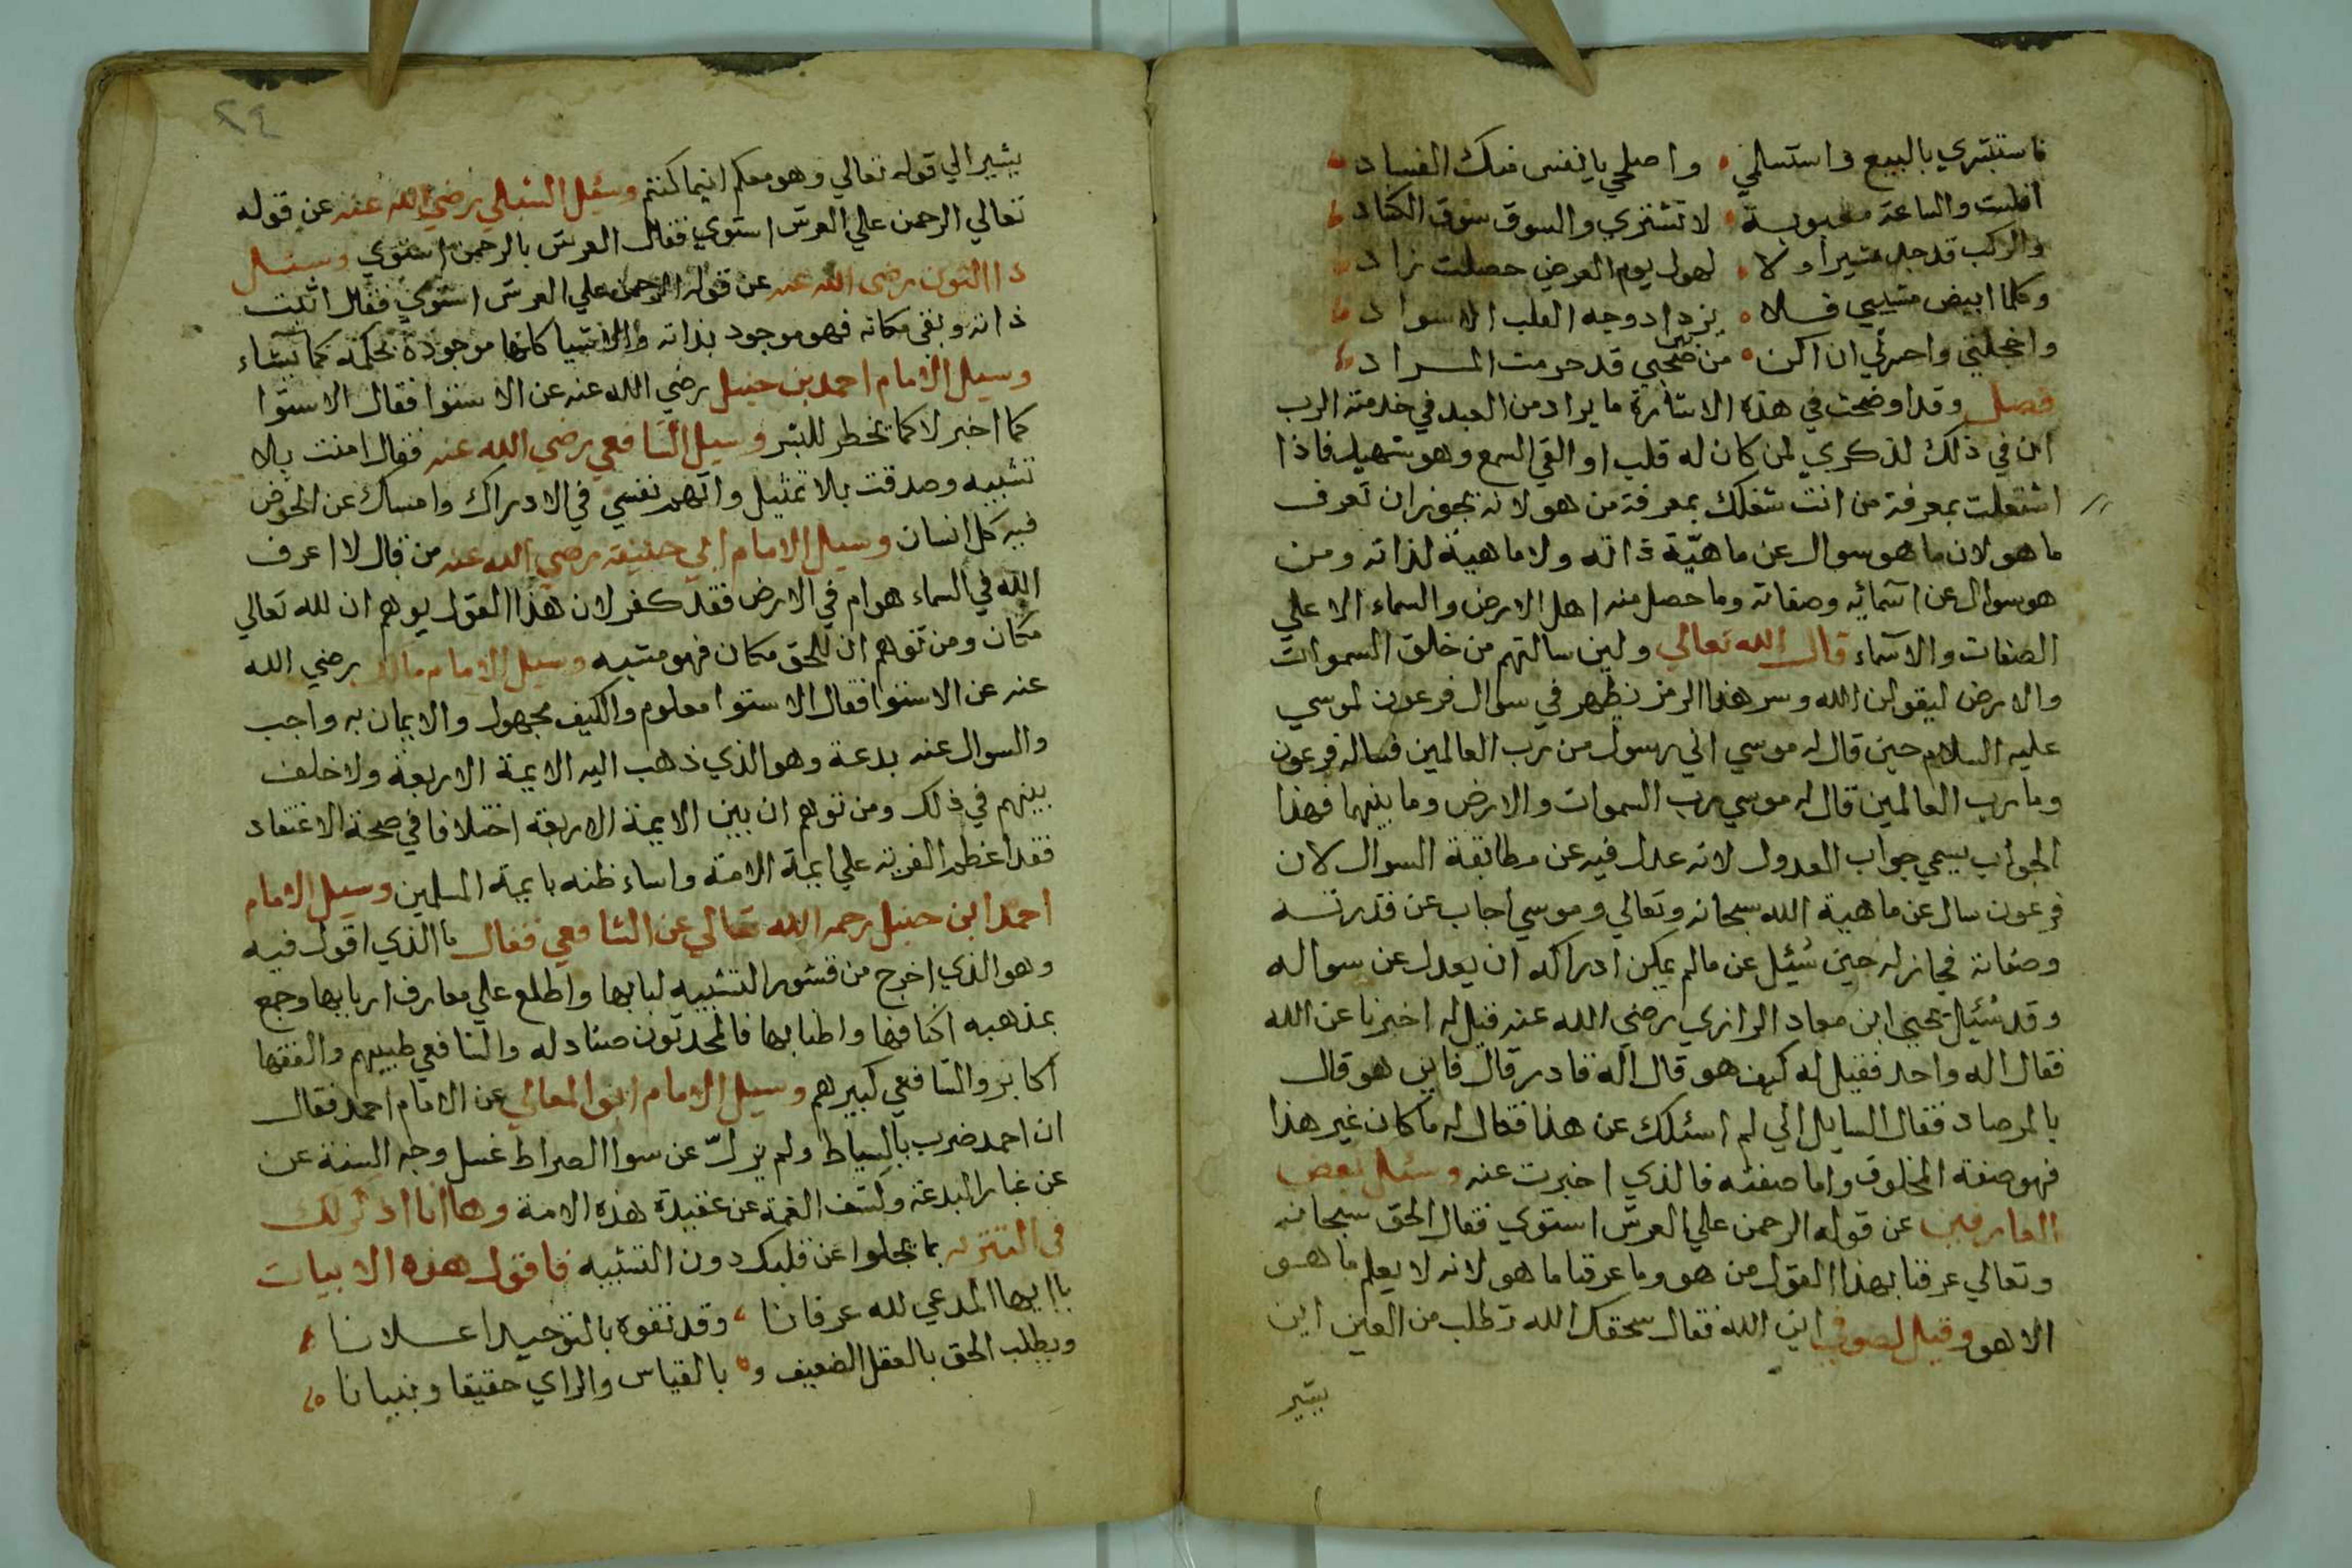 فاستبشري بالبيع واستسلمي واصلحي يا نفس منك الفساد
افلست والساعة محبوبة لا تشتري والسوق سوق الكساد
والركب قد جل مشيرا ولا لهول يوم العرض حصلت زاد
وكلما ابيض مشيبي فلا يزداد وجه القلب الا سواد
واخجلتي واحسرتي ان اكن من بين صحبي قد حرمت المراد
فصل وقد اوضحت في هذه الاشارة ما يراد من العبد في خدمته الرب
ان في ذلك لذكري لمن كان له قلب او القي السمع وهو شهيد فاذا
اشتغلت بمعرفة من انت شغلك بمعرفة من هو لانه يجوز ان تعرف
ما هو لان ما هو سوال عن ماهيّة ذاته ولا ماهية لذاته ومن
هو سوال عن اسمائه وصفاته وما حصل منه اهل الارض والسماء الا علي
الصفات والاسماء قال الله تعالي ولين سالتهم من خلق السموات
والارض ليقولن الله وسر هذا الرمز يظهر في سوال فرعون لموسي
عليه السلام حين قال له موسي اني رسول من رب العالمين فساله فرعون
وما رب العالمين قال له موسي رب السموات والارض وما بينهما فهذا
الجواب يسمي جواب العدول لانه عدل فيه عن مطابقة السوال لان
فرعون سال عن ماهية الله سبحانه وتعالي وموسي اجاب عن قدرته
وصفاته فجاز له حين سُئل عن مالم يمكن ادراكه ان يعدل عن سواله
وقد سُئيل يحيي ابن معاد الرازي رضي الله عنه فقيل له اخبرنا عن الله
فقال اله واحد فقيل له كيف هو قال اله قادر قال فاين هو قال
بالمرصاد فقال السايل الي لم اسئلك عن هذا فقال له ما كان غير هذا
فهو صفة المخلوق واما صفته فالذي اخبرت عنه وسئل بعض
العارفين عن قوله الرحمن علي العرش استوي فقال الحق سبحانه
وتعالي عرفنا بهذا القول من هو وما عرفنا ما هو لانه لا يعلم ما هو
الا هو وقيل لصوفي اين الله فقال سحقك الله تطلب من العين اين
يشير
٢٤
يشير الي قوله تعالي وهو معكم اينما كنتم وسئل الشبلي رضي الله عنه عن قوله
تعالي الرحمن علي العرش استوي فقال العرش بالرحمن استوي وسئل
ذا النون رضي الله عنه عن قوله الرحمن علي العرش استوي فقال اثبت
ذاته ونفي مكانه فهو موجود بذاته والاشيا كلها موجودة بحكمه كما يشاء
وسيل الامام احمد بن حنبل رضي الله عنه عن الاستوا فقال الاستوا
كما اخبر لا كما يخطر للبشر وسيل الشافعي رضي الله عنه فقال امنت بلا
تشبيه وصدقت بلا تمثيل واتهمت نفسي في الادراك وامساك عن الخوض
فيه كل انسان وسيل الامام ابي حنيفة رضي الله عنه من قال لا اعرف
الله في السماء هو ام في الارض فقد كفر لان هذا القول يوهم ان لله تعالي
مكان ومن توهم ان للحق مكان فهو مشبه وسيل الامام مالك رضي الله
عنه عن الاستوا فقال الاستوا معلوم والكيف مجهول والايمان به واجب
والسوال عنه بدعة وهو الذي ذهب اليه الايمة الاربعة ولا خلف
بينهم في ذلك ومن توهم ان بين الايمة الاربعة اختلافا في صحة الاعتقاد
فقد اعظم الفرية علي ايمة الامة واساء ظنه بايمة المسلمين وسيل الامام
احمد ابن حنبل رحمه الله تعالي عن الشافعي فقال ما الذي اقول فيه
وهو الذي اخرج من قشور التشبيه لبابها واطلع علي معارف اربابها وجمع
بمذهبه اكنافها واطنابها فالمحدثون صنادله والشافعي طبيبهم والفقها
اكابر والشافعي كبيرهم وسيل الامام ابو المعالي عن الامام احمد فقال
ان احمد ضرب بالسياط ولم يزلّ عن سوا الصراط غسل وجه السنة عن
عن غبار البدعة وكشف الغمة عن عقيدة هذه الامة وها انا اذكر لك
في التنزيه بما يجلوا عن قلبك دون التشبيه فاقول هذه الابيات
يا ايها المدعي لله عرفانا وقد تفوه بالتوحيد اعلانا
ويطلب الحق بالعقل الضعيف و بالقياس والراي حقيقا وبنيانا